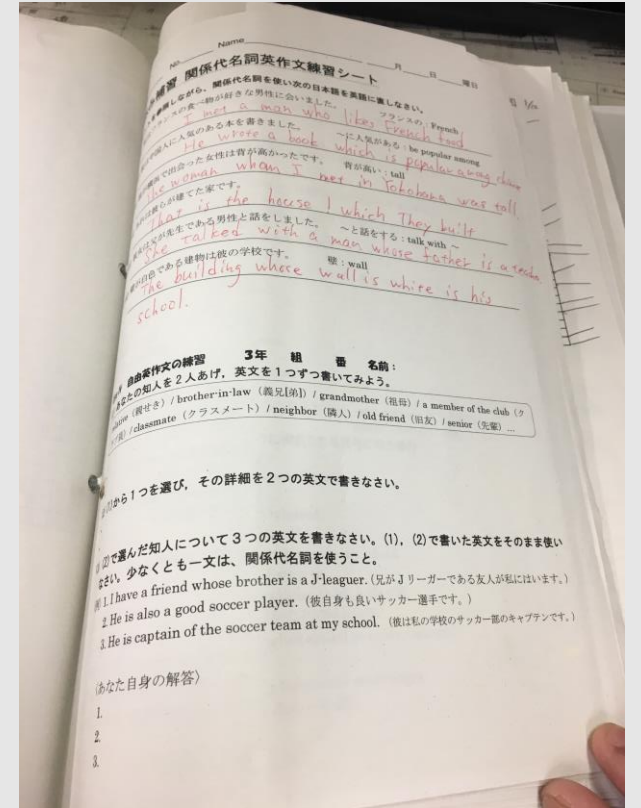 No. Name 月 日 曜日
練習 関係代名詞英作文練習シート
しながら、関係代名詞を使い次の日本語を英語に直しなさい。
フランスの食べ物が好きな男性に会いました。 フランスの：French
I met a man who likes French food
国人に人気のある本を書きました。 ～に人気がある：be popular among
He wrote a book which is popular among
で出会った女性は背が高かったです。 背が高い：tall
The woman whom I met in Yokohama was tall
らが建てた家です。
That is the house which They built
が先生である男性と話をしました。 ～と話をする：talk with ～
She talked with a man whose father is a
が白色である建物は彼の学校です。 壁：wall
The building whose wall is white is his
school.
自由英作文の練習 3年 組 番 名前：
あなたの知人を2人あげ，英文を1つずつ書いてみよう。
（親せき）/ brother-in-law（義兄[弟]）/ grandmother（祖母）/ a member of the club（ク
/ classmate（クラスメート）/ neighbor（隣人）/ old friend（旧友）/ senior（先輩）...
から1つを選び，その詳細を2つの英文で書きなさい。
(2)で選んだ知人について3つの英文を書きなさい。(1)，(2)で書いた英文をそのまま使い
なさい。少なくとも一文は、関係代名詞を使うこと。
1. I have a friend whose brother is a J-leaguer.（兄がJリーガーである友人が私にはいます。）
2. He is also a good soccer player.（彼自身も良いサッカー選手です。）
3. He is captain of the soccer team at my school.（彼は私の学校のサッカー部のキャプテンです。）
〈あなた自身の解答〉
1.
2.
3.